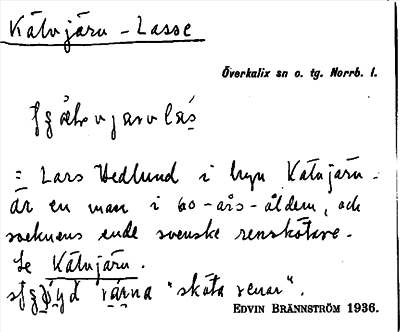 Kätvjärv - Lasse
Överkalix sn o. tg. Norrb. l.
= Lars Hedlund i byn Kätvjärv.
är en man i 60-års-åldern, och
socknens ende svenske renskötare.
Se Kätvjärv.
"sköta renar".
EDVIN BRÄNNSTRÖM 1936.